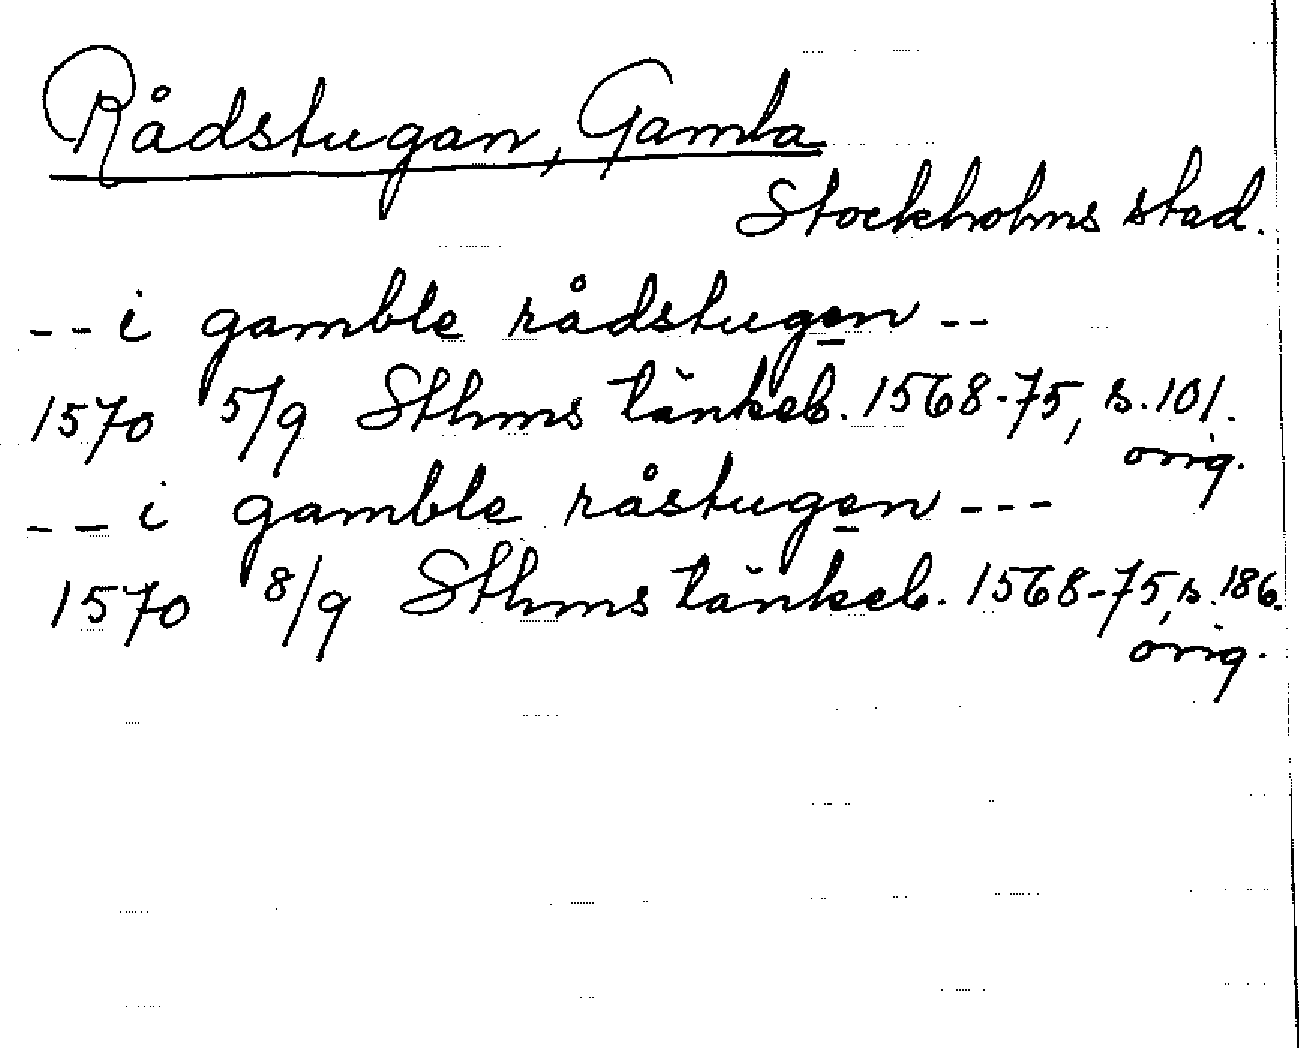 Rådstugan, Gamla
Stockholms stad.
-- i gamble rådstugen --
1570 5/9 Sthms tänkeb. 1568-75, s. 101.
orig.
-- i gamble råstugen ---
1570 8/9 Sthms tänkeb. 1568-75, s. 186.
orig.